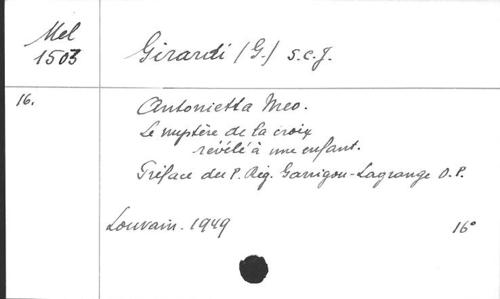 Mel
1503
Girardi (G.) s.c.j.
16.
Antonietta Meo.
Le mystère de la croix
révélé à une enfant.
Préface du P. Rég. Garrigou-Lagrange O.P.
Louvain. 1949
16°